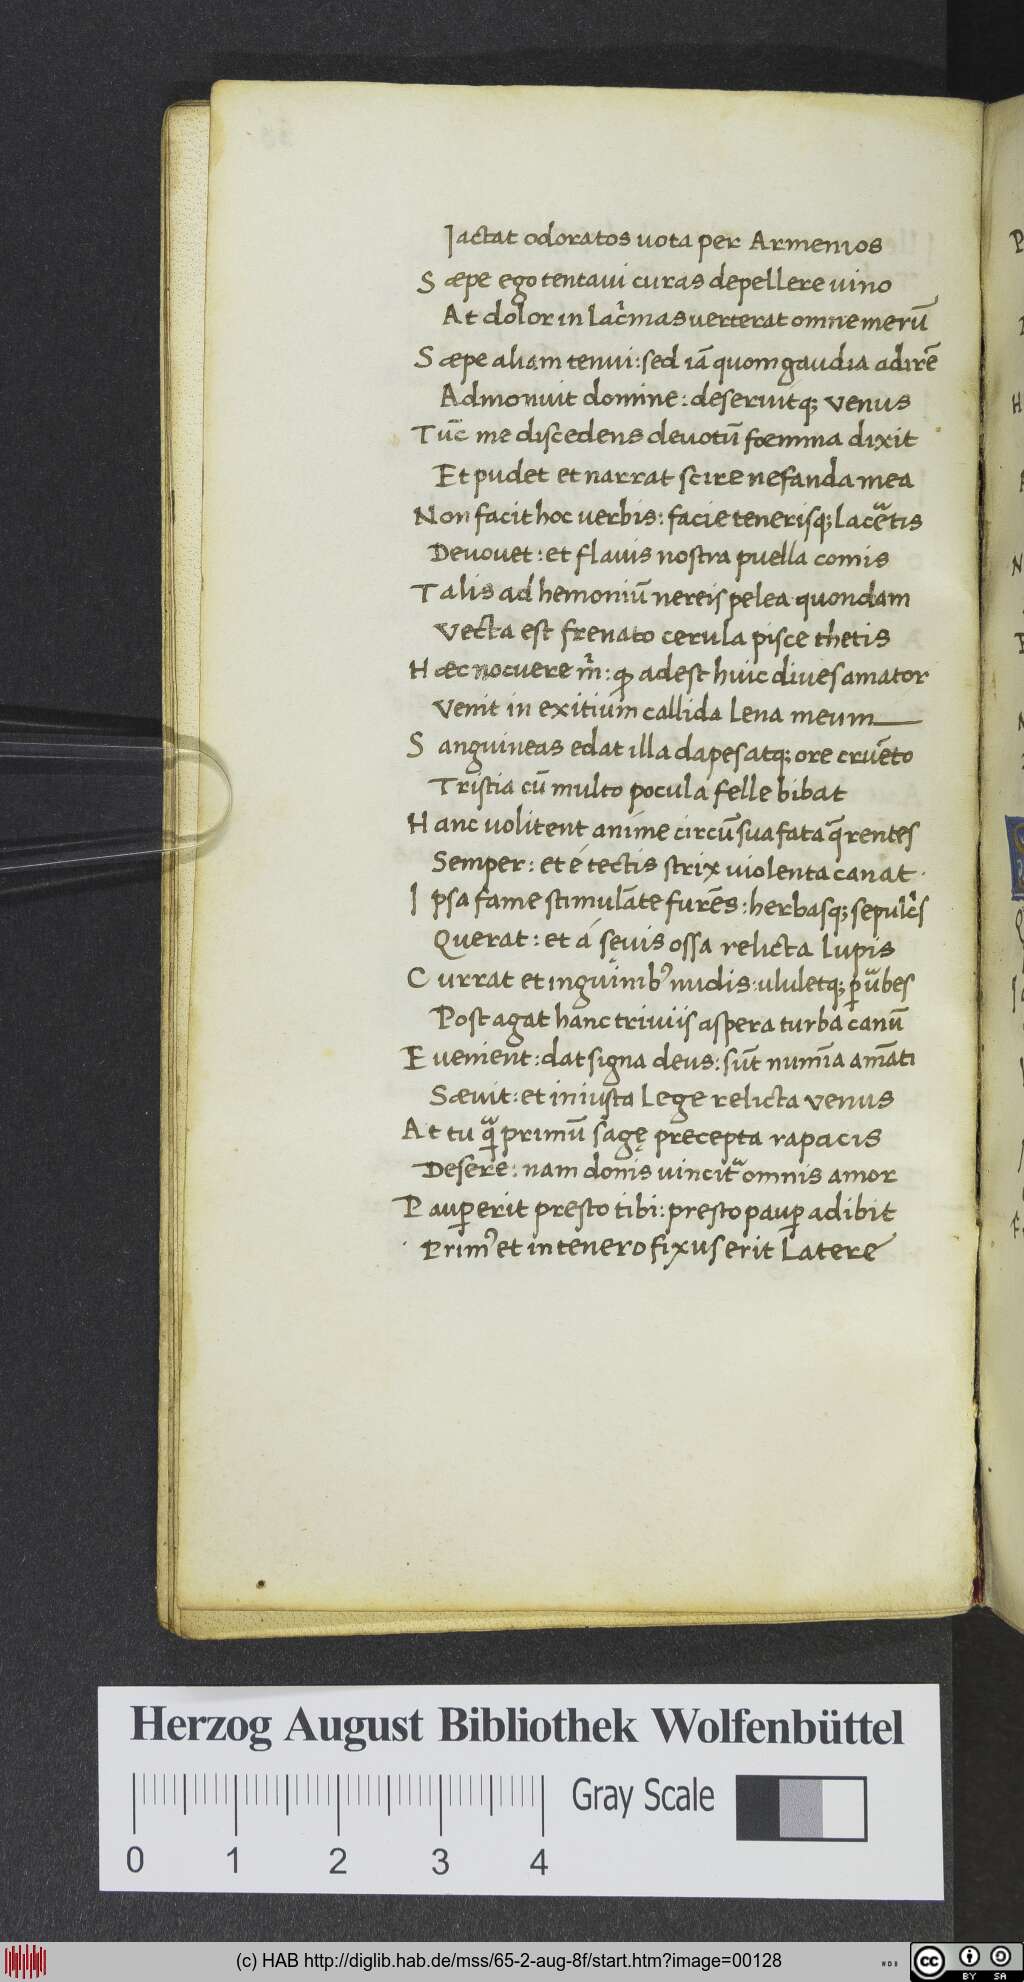 Iactat odoratos uota per Armenios
Sæpe ego tentaui curas depellere uino
At dolor in lacr̄mas uerterat omne merū
Sæpe aliam tenui: sed iā quom gaudia adirē
Admonuit domine: deseruitq; venus
Tūc me discedens deuotū foemina dixit
Et pudet et narrat scire nefanda mea
Non facit hoc uerbis: facie tenerisq; lacētis
Deuouet: et flauis nostra puella comis
Talis ad hemoniū nereis pelea quondam
Vecta est frenato cerula pisce thetis
Hæc nocuere m̄: ꝙ adest huic diues amator
Venit in exitium callida Lena meum
Sanguineas edat illa dapes atq; ore cruēto
Tristia cū multo pocula felle bibat
Hanc uolitent anime circū sua fata q̄rentes
Semper: et é tectis strix uiolenta canat.
Ipsa fame stimulāte furēs: herbasq; sepulcͥs
Querat: et á seuis ossa relicta lupis
Currat et inguinibꝰ nudis: ululetq; ꝑ ūbes
Post agat hanc triuiis aspera turba canū
Euenient: dat signa deus: sūt numīa amāti
Sæuit: et iniusta Lege relicta venus
At tu qᷓꝑrimū sagę precepta rapacis
Desere: nam donis uincitᷓ omnis amor
Pauꝑ erit presto tibi: presto pauꝑ adibit
Primꝰ et in tenero fixus erit Latere
Herzog August Bibliothek Wolfenbüttel
Gray Scale
0 1 2 3 4
(c) HAB http://diglib.hab.de/mss/65-2-aug-8f/start.htm?image=00128
cc BY SA